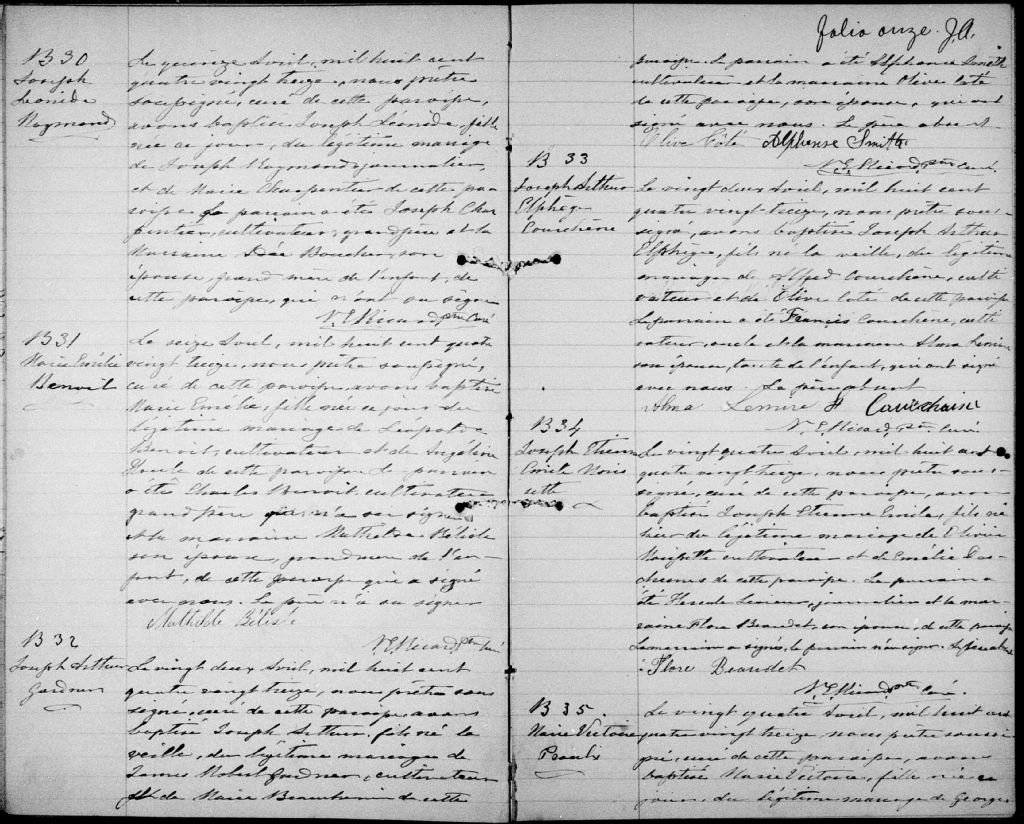 B 30
Joseph
Leonide
Raymond
Le quinze Avril, mil huit cent
quatre vingt treize, nous prêtre
soussigné, curé de cette paroisse,
avons baptisé Joseph Léonide, fils
née ce jour, du légitime mariage
de Joseph Raymond journalier,
et de Marie Charpentier de cette pa
roisse Le parrain a été Joseph Char
pentier, cultivateur, grand père et la
Marraine Boucher, son
épouse, grand mère de l'enfant, de
cette paroisse, qui n'ont su signer
N. E. Ricard, ptre Curé
B 31
Marie Emélie
Benoit
Le seize Avril, mil huit cent quatre
vingt treize, nous prêtre soussigné,
curé de cette paroisse, avons baptisé
Marie Emélie, fille née ce jour du
légitime mariage de Léopold
Benoit, cultivateur et de Angélina
de cette paroisse Le parrain
a été Charles Benoit, cultivateur
grand père qui n'a su signer
et la marraine Mathilde Bélisle
son épouse, grand mère de l'en
fant, de cette paroisse qui a signé
avec nous. Le père n'a su signer
Mathilde Bélisle
N. E. Ricard ptre Curé
B 32
Joseph Arthur
Gardner
Le vingt deux Avril, mil huit cent
quatre vingt treize, nous prêtre sous
signé, curé de cette paroisse avons
baptisé Joseph Arthur, fils né la
veille, du légitime mariage de
James Robert Gardner, cultivateur
et de Marie Beauchemin de cette
folio onze. J.A.
paroisse. Le parrain a été Alphonse Smith
cultivateur et la marraine Olive Coté
de cette paroisse, son épouse, qui ont
signé avec nous. Le père absent
Olive Côté Alphonse Smith
N. E. Ricard, ptre Curé.
B 33
Joseph Arthur
Elphège
Courchène
Le vingt deux Avril, mil huit cent
quatre vingt treize, nous prêtre sous-
signé, avons baptisé Joseph Arthur
Elphège, fils né la veille, du légitime
mariage de Alfred Courchène, culti
vateur et de Olive Coté de cette paroisse
Le parrain a été François Courchène, culti
vateur, oncle et la marraine Alma Lemire
son épouse, tante de l'enfant, qui ont signé
avec nous. Le père absent
Alma Lemire F Courchaine
N. E. Ricard, ptre Curé
B 34
Joseph Etienne
Emile Noris
sette
Le vingt quatre Avril, mil huit cent
quatre vingt treize, nous prêtre sous-
signé, curé de cette paroisse, avons
baptisé Joseph Etienne Emile, fils né
hier du légitime mariage de Olivier
cultivateur et de Emélie Des-
chesnes de cette paroisse. Le parrain a
été Hercule Lemieux, journalier et la mar-
raine Flore Beaudet, son épouse, de cette paroisse
La marraine a signé, le parrain n'a su signer.
Flore Beaudet
N. E. Ricard, ptre Curé.
B 35.
Marie Victoire
Proulx
Le vingt quatre Avril, mil huit cent
quatre vingt treize nous prêtre soussi
gné, curé de cette paroisse, avons
baptisé Marie Victoire, fille née ce
jour, du légitime mariage de Georges